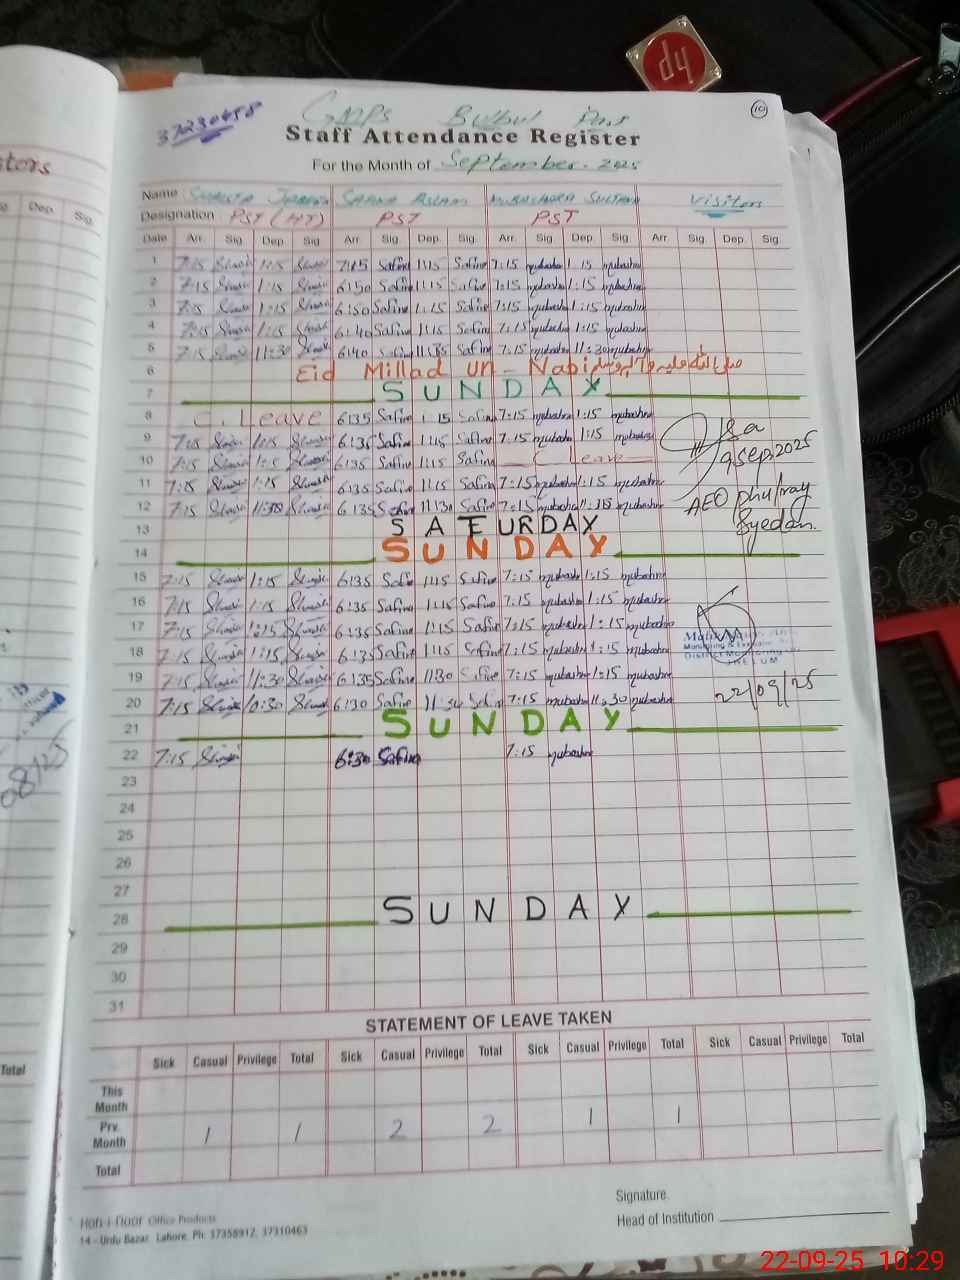 37230458
GMPS Bulbul Pass
10
Staff Attendance Register
For the Month of September. 2025
Name SAFINA ASLAM MUBASHARA SULTANA Visitors
Designation PST (HT) PST PST
Date Arr. Sig. Dep. Sig. Arr. Sig. Dep. Sig. Arr. Sig. Dep. Sig. Arr. Sig. Dep. Sig.
1 7:15 1:15 7:15 Safina 1:15 Safina 7:15 mubashra 1:15 mubashra
2 7:15 1:15 6:50 Safina 1:15 Safina 7:15 mubashra 1:15 mubashra
3 7:15 1:15 6:50 Safina 1:15 Safina 7:15 mubashra 1:15 mubashra
4 7:15 1:15 6:40 Safina 1:15 Safina 7:15 mubashra 1:15 mubashra
5 7:15 11:30 6:40 Safina 11:35 Safina 7:15 mubashra 11:30 mubashra
6 Eid Millad un-Nabi صلی اللہ علیہ وآلہ وسلم
7 SUNDAY
8 C. Leave 6:35 Safina 1:15 Safina 7:15 mubashra 1:15 mubashra
9 7:15 1:15 6:35 Safina 1:15 Safina 7:15 mubashra 1:15 mubashra
10 7:15 1:15 6:35 Safina 1:15 Safina C Leave
11 7:15 1:15 6:35 Safina 1:15 Safina 7:15 mubashra 1:15 mubashra
12 7:15 11:30 6:35 Safina 11:30 Safina 7:15 mubashra 11:15 mubashra
9 Sep, 2025
AEO phulray
Syedan.
13 SATURDAY
14 SUNDAY
15 7:15 1:15 6:35 Safina 1:15 Safina 7:15 mubashra 1:15 mubashra
16 7:15 1:15 6:35 Safina 1:15 Safina 7:15 mubashra 1:15 mubashra
17 7:15 1:15 6:35 Safina 1:15 Safina 7:15 mubashra 1:15 mubashra
18 7:15 1:15 6:35 Safina 1:15 Safina 7:15 mubashra 1:15 mubashra
19 7:15 11:30 6:35 Safina 11:30 Safina 7:15 mubashra 1:15 mubashra
20 7:15 10:30 6:30 Safina 11:30 Safina 7:15 mubashra 11:30 mubashra
District Monitoring
JHELUM
22/09/25
21 SUNDAY
22 7:15 6:30 Safina 7:15 mubashra
23
24
25
26
27
28 SUNDAY
29
30
31
STATEMENT OF LEAVE TAKEN
Sick Casual Privilege Total Sick Casual Privilege Total Sick Casual Privilege Total Sick Casual Privilege Total
This Month
Prv. Month 1 1 2 2 1 1
Total
Signature.
Head of Institution
Hafi-i-Noor Office Products
14 - Urdu Bazar, Lahore. Ph: 37358912, 37310463
Dep. Sig.
Total
08/25
22-09-25 10:29